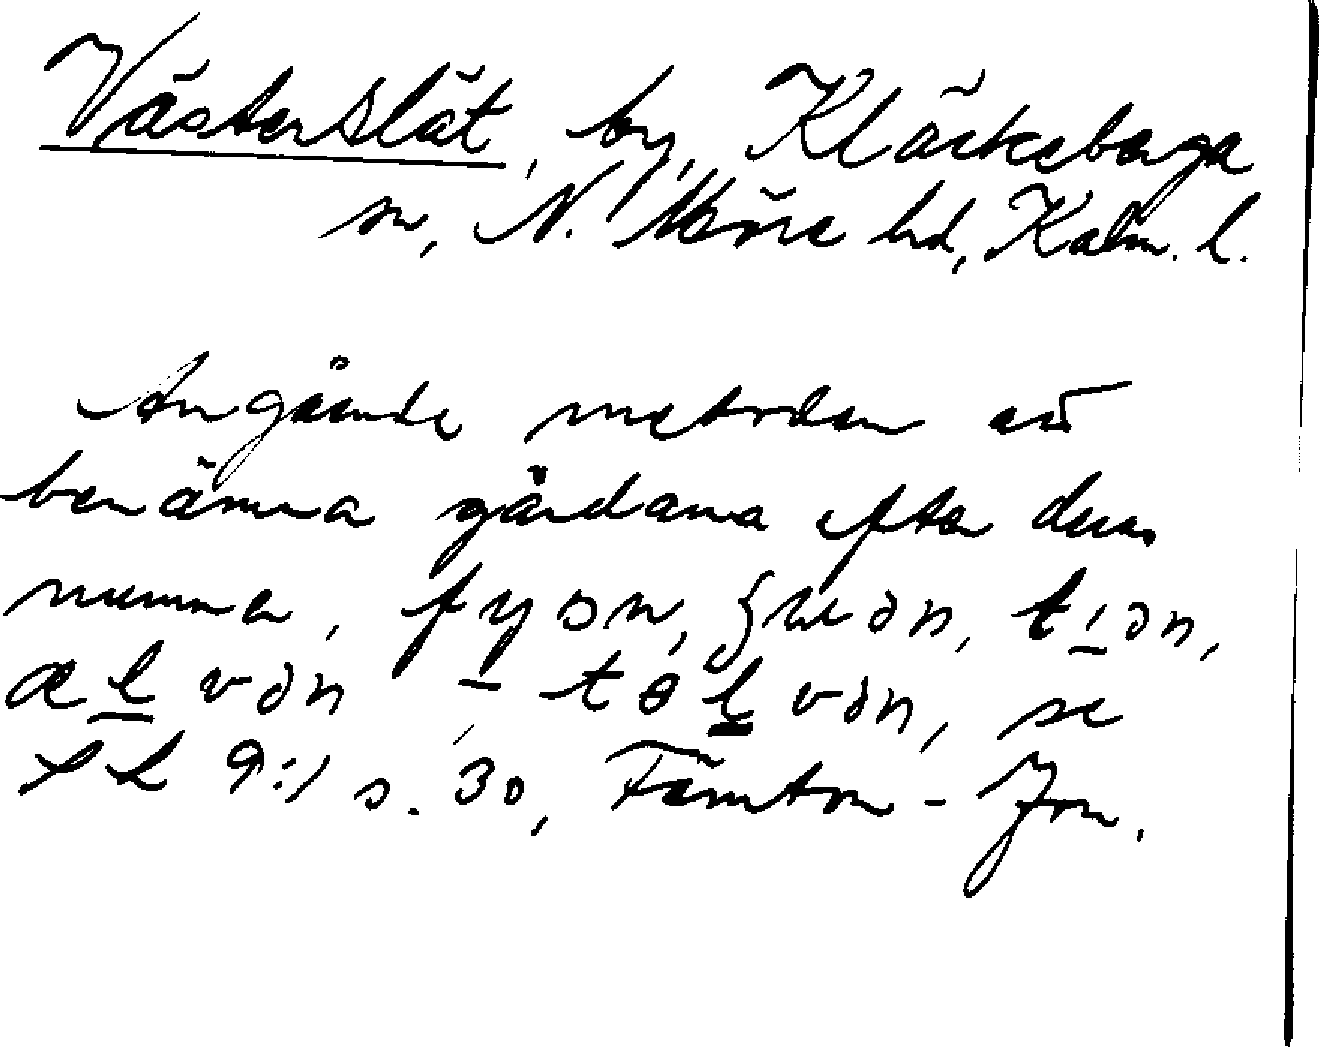 Västerslät, by, Kläckeberga
sn, N. Möre hd, Kalm. l.
Angående metoden att
benämna gårdarna efter deras
nummer, fyən, ʃuən, tiən,
ælvən – tɵlvən, se
9:1 s. 30, Fämton-Jon.